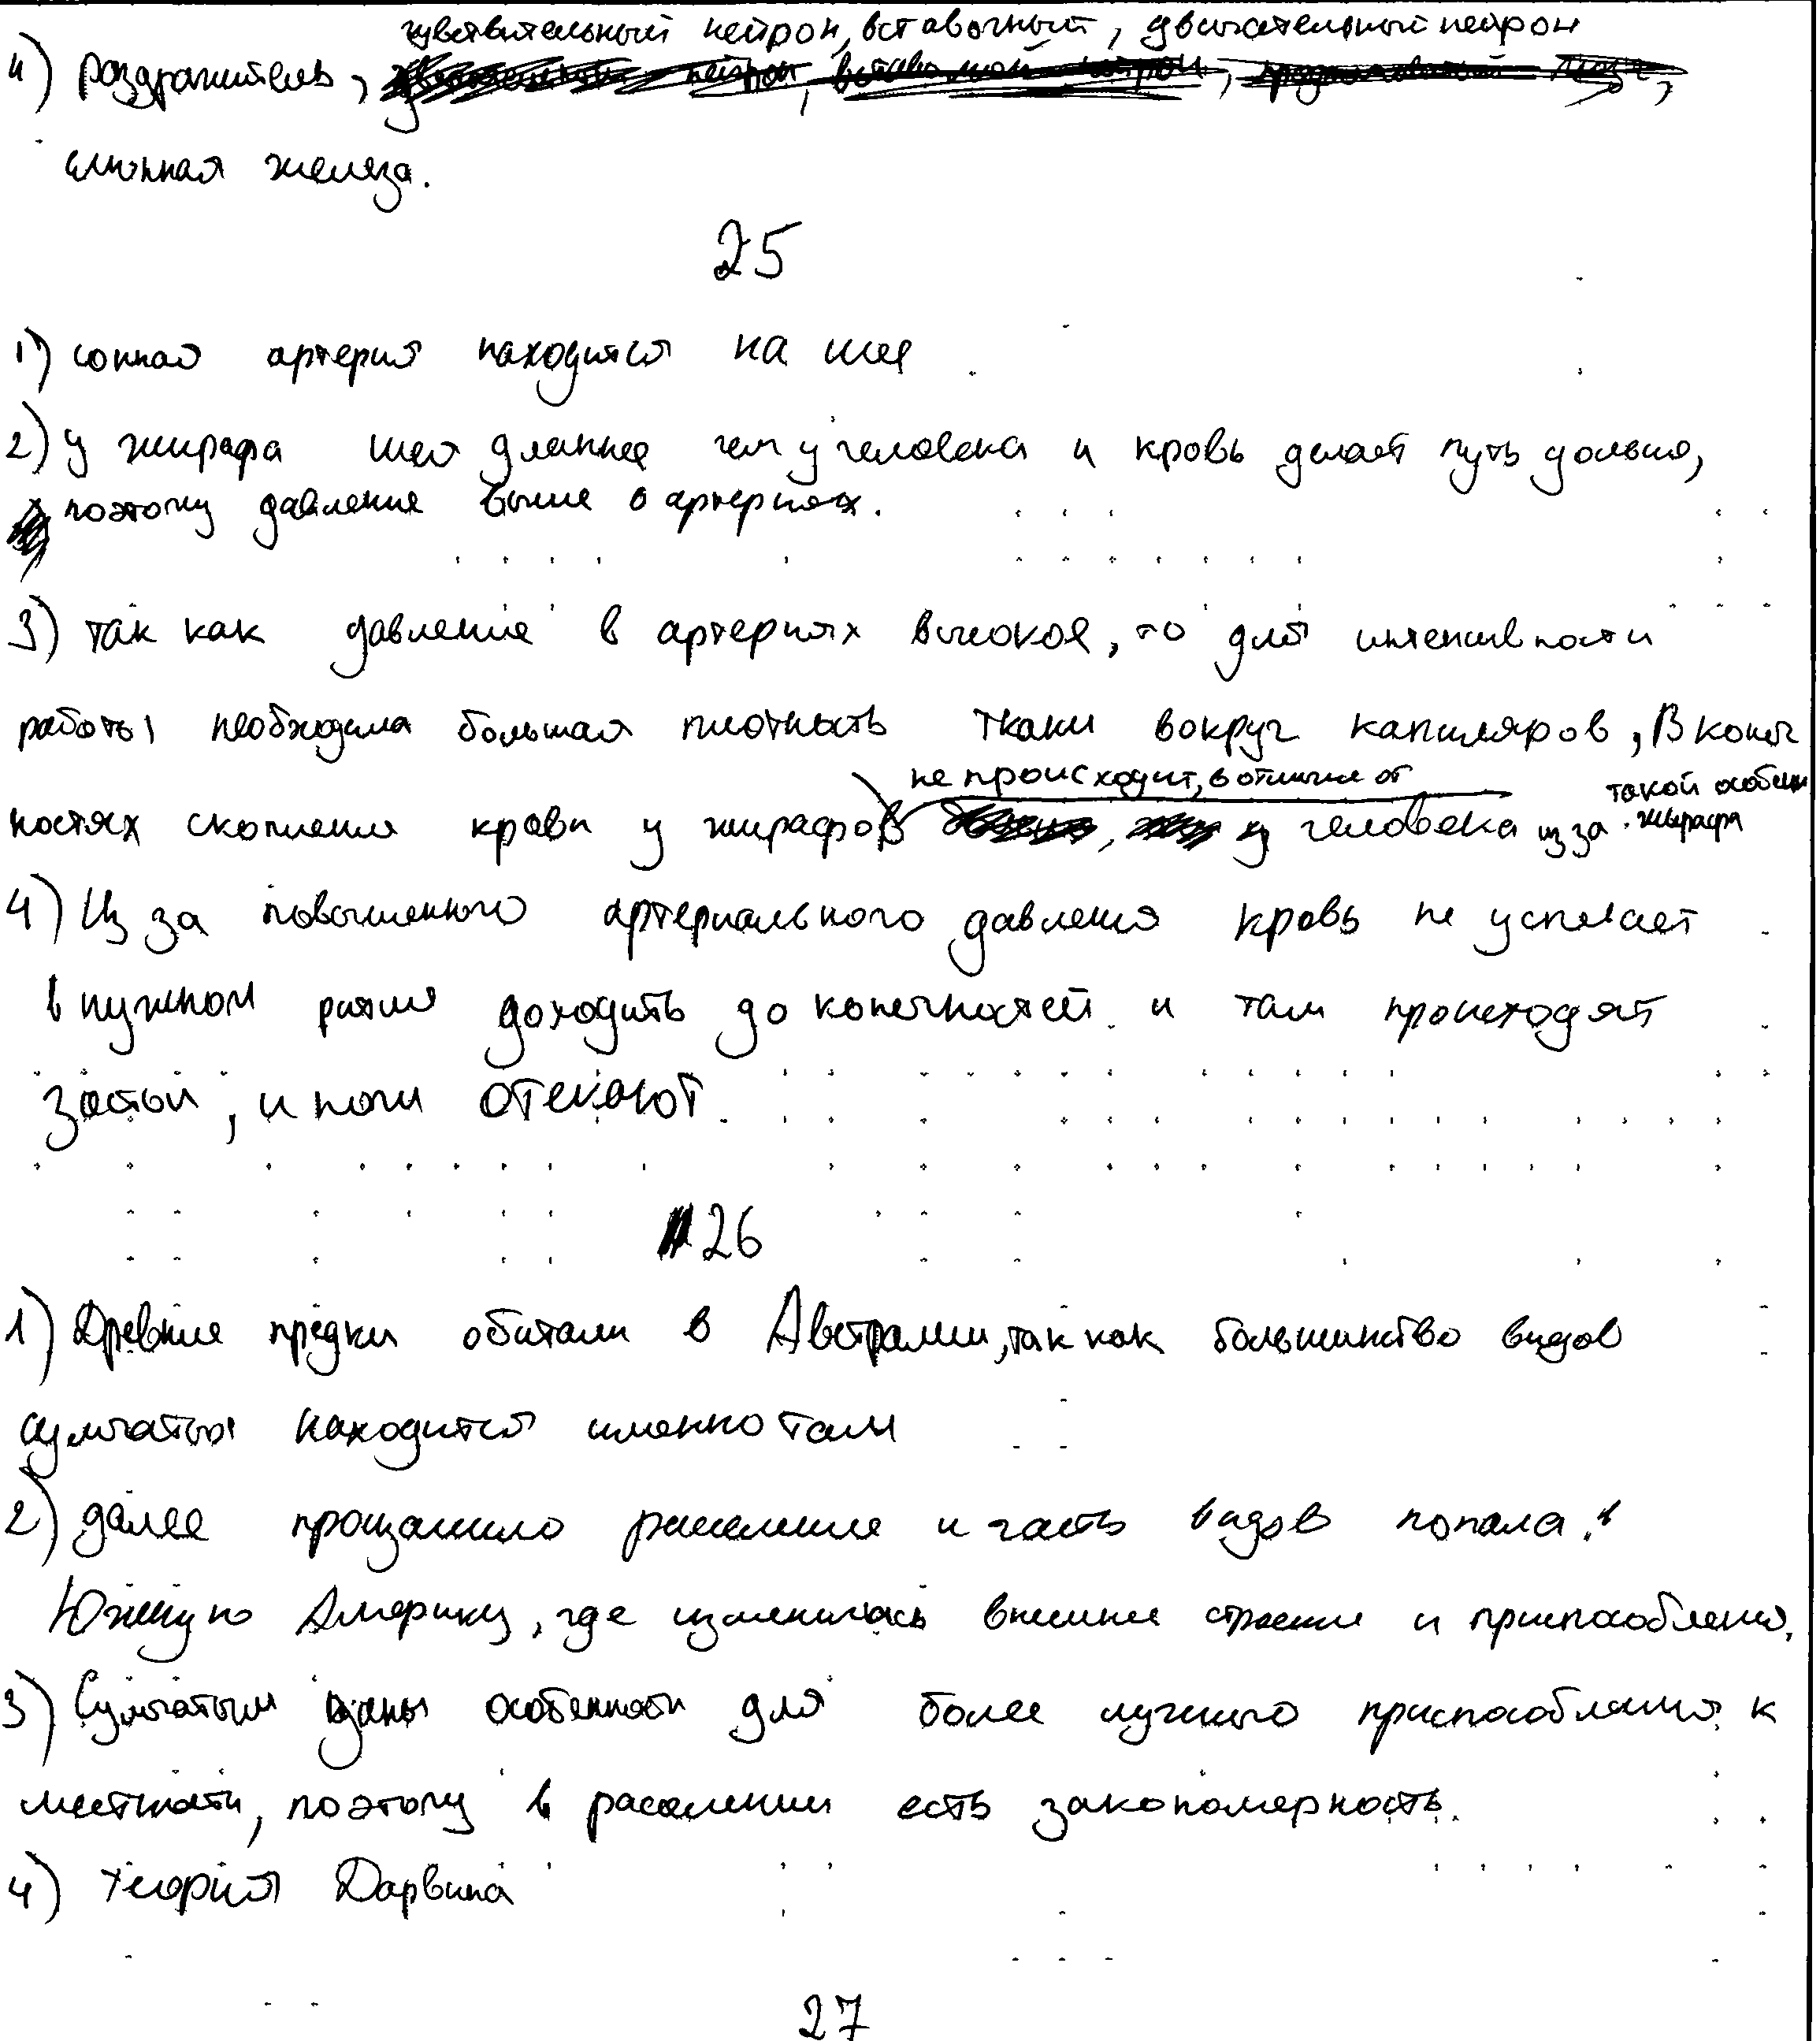 чувствительный нейрон, вставочный, двигательный нейрон
4) раздражитель,
слюнная железа.
25
1) сонная артерия находится на шее
2) у жирафа шея длиннее чем у человека и кровь делает путь дольше,
поэтому давление выше в артериях.
3) так как давление в артериях высокое, то для интенсивности
работы необходима большая плотность ткани вокруг капиляров, В конеч
не происходит, в отличие от
такой особен
ностях скопления крови у жирафов человека из за жирафа
4) Из за повышенного артериального давления кровь не успевает
в нужном ритме доходить до конечностей и там происходят
застои, и ноги отекают.
26
1) Древние предки обитали в Австралии, так как большинство видов
сумчатых находится именно там
2) далее произошло расселение и часть видов попала в
Южную Америку, где изменилась внешнее строение и приспособления.
3) Сумчатым даны особенности для более лучшего приспособления к
местности, поэтому в расселении есть закономерность.
4) теория Дарвина
27